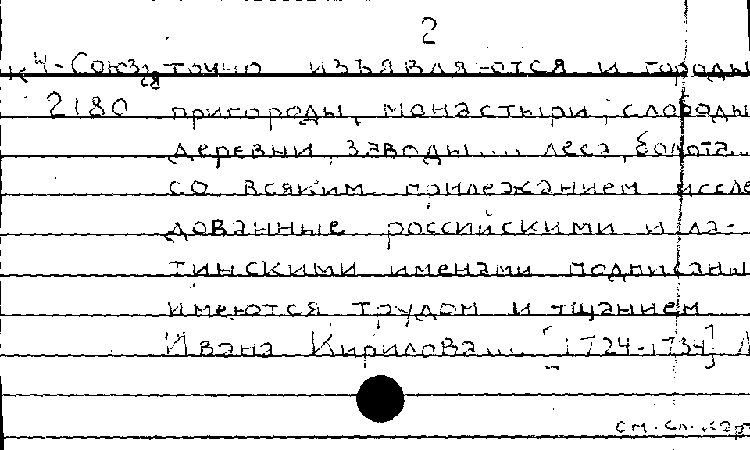 2
к 4-Союз точно изъявляются и городы
2180 пригороды, монастыри, слободы
деревни, заводы... леса, болота..
со всяким прилежанием иссле
дованные российскими и ла-
тинскими именами подписаны
имеются трудом и тщанием
Ивана Кирилова... [1724-1734]
см. сл. кар